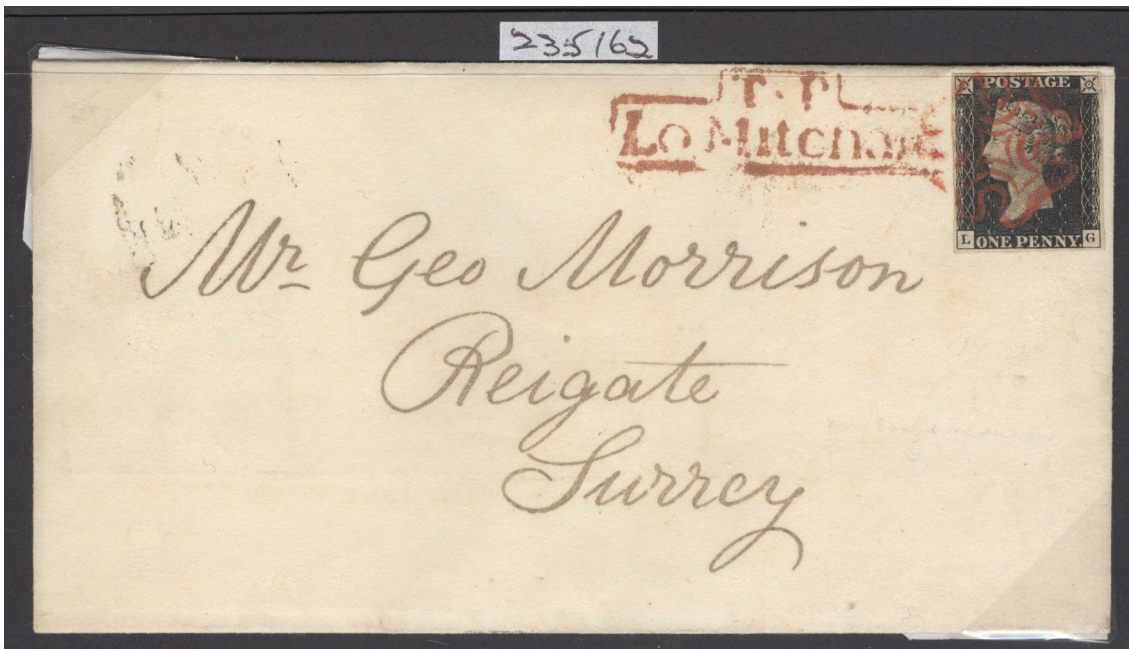 235/62
T.P
Lo Mitcham
POSTAGE
L ONE PENNY. G
Mr Geo Morrison
Reigate
Surrey